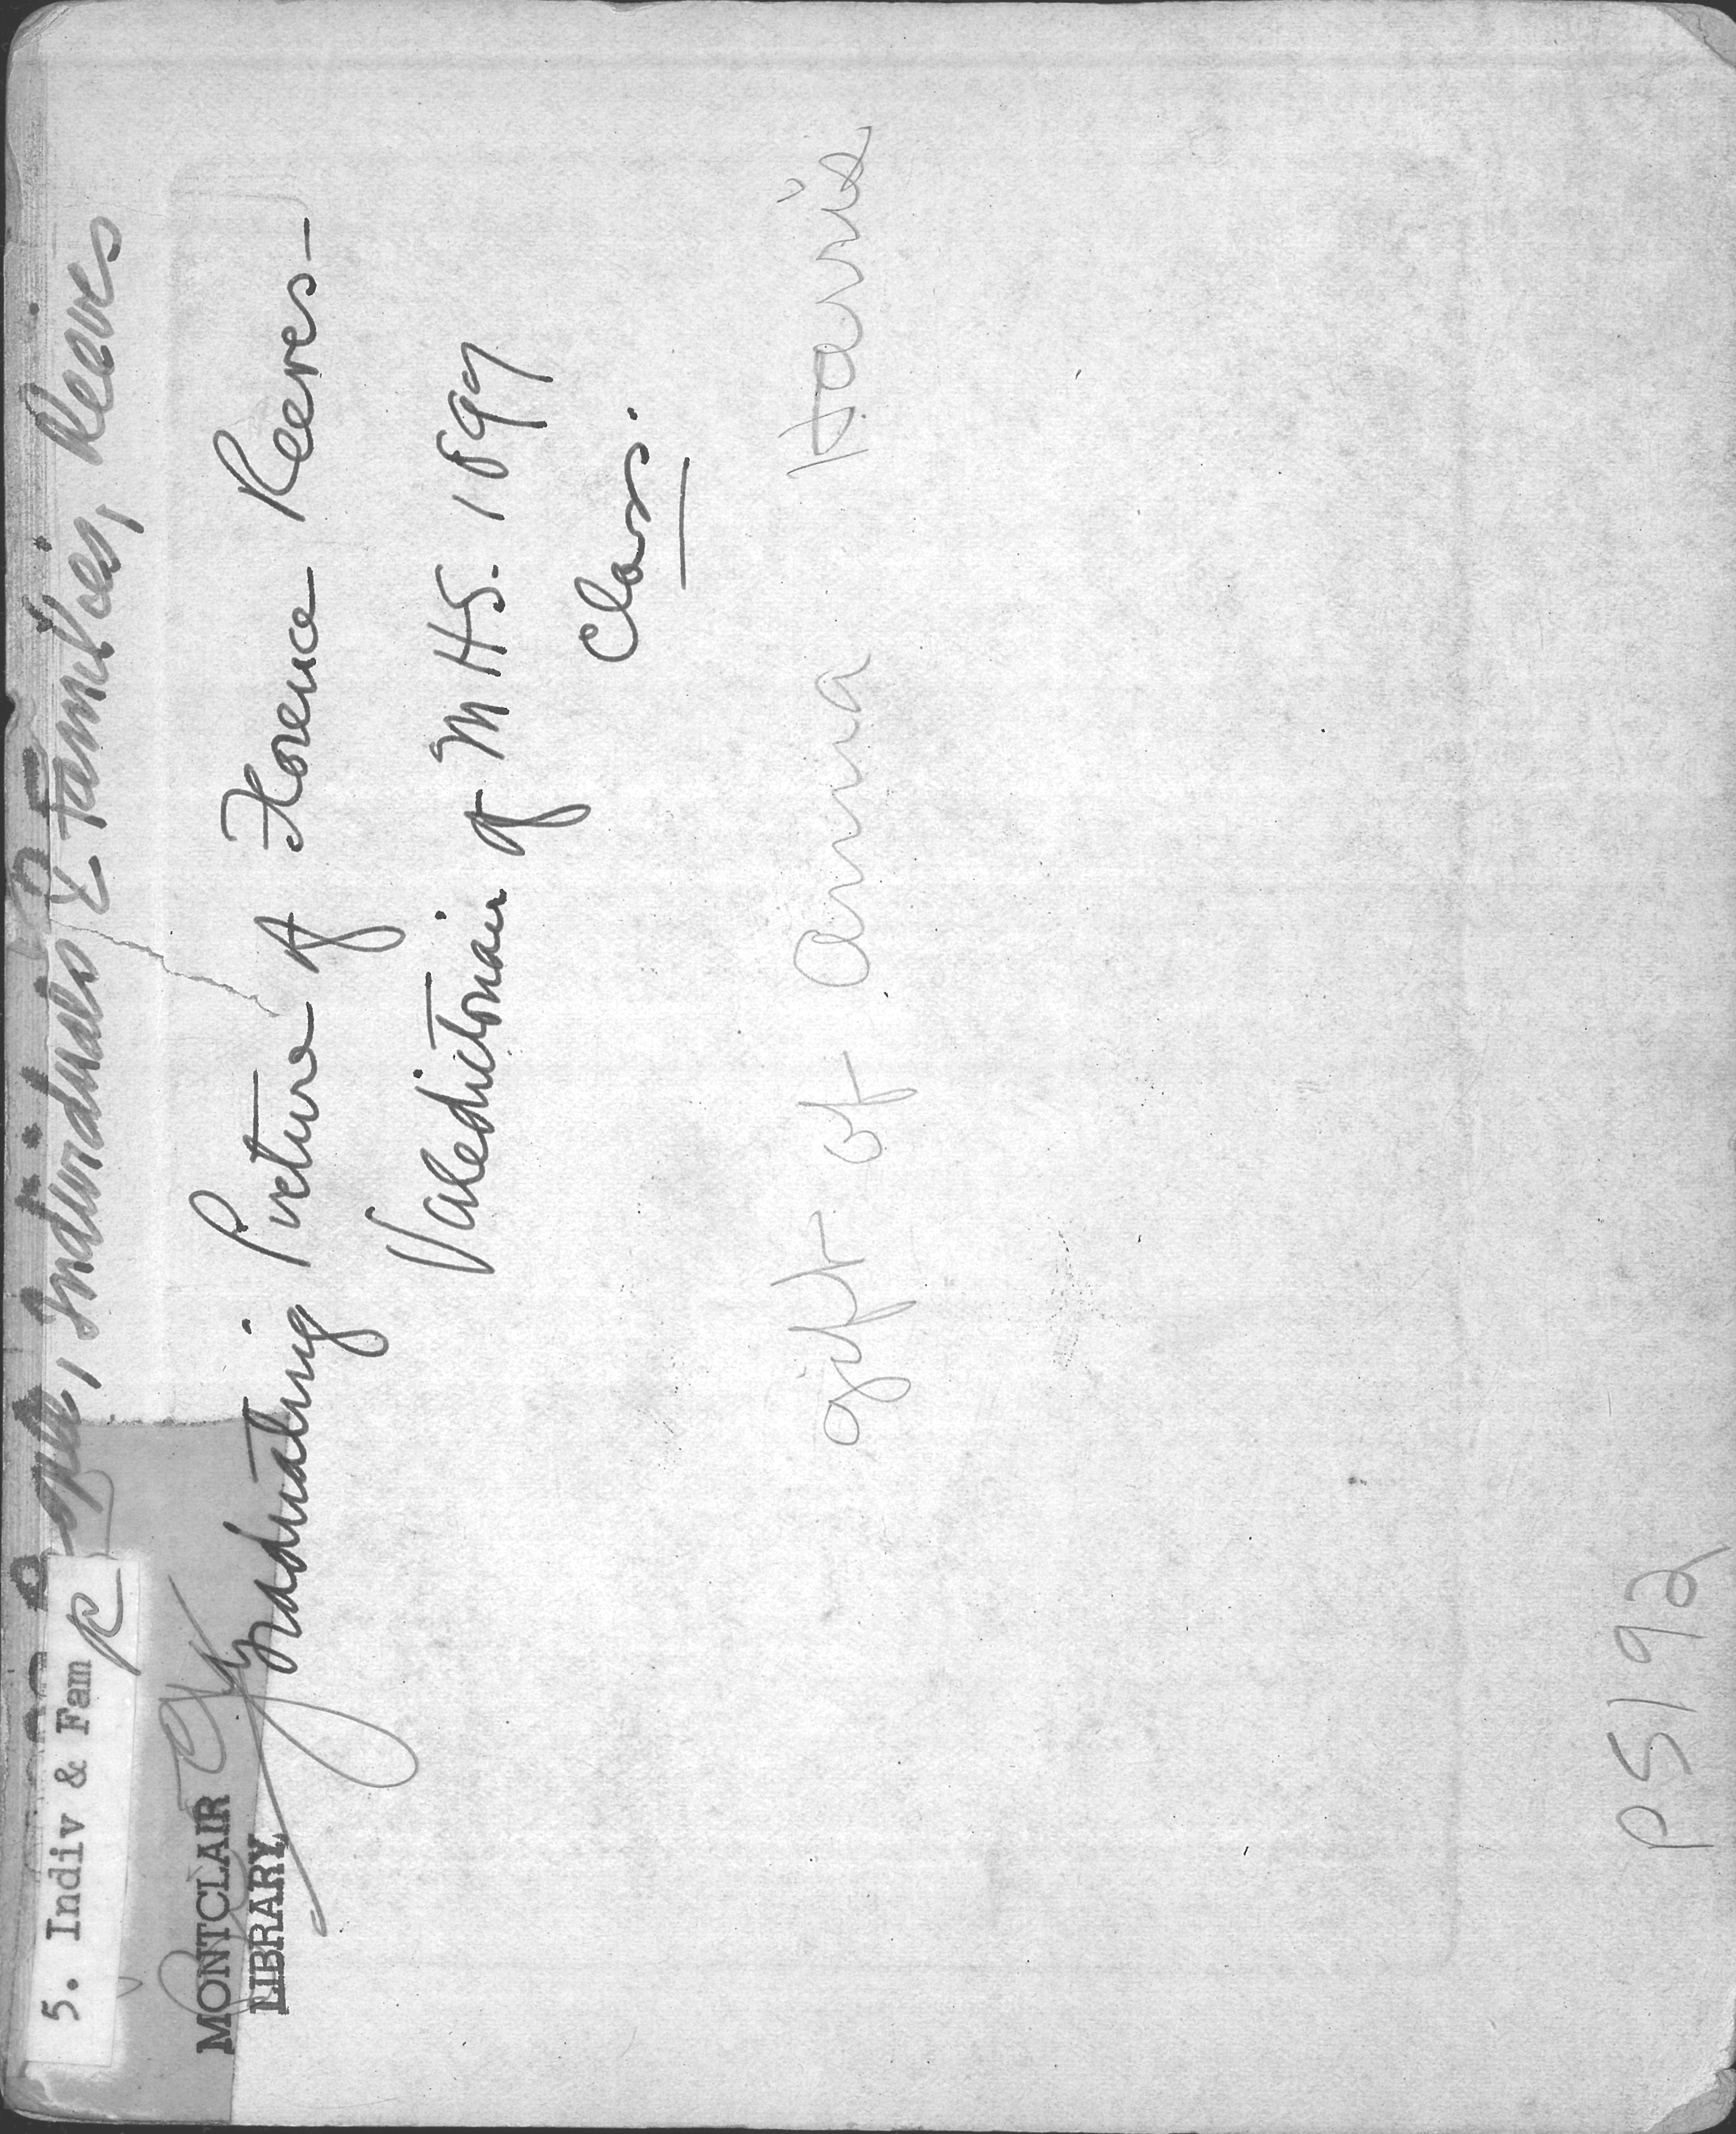 People, Individuals & Families, Reeves
5. Indiv & Fam R
MONTCLAIR
LIBRARY
Graduating Picture of Florence Reeves—
Valedictorian of M H S. 1897
Class.
gift of Anna Harris
P5192